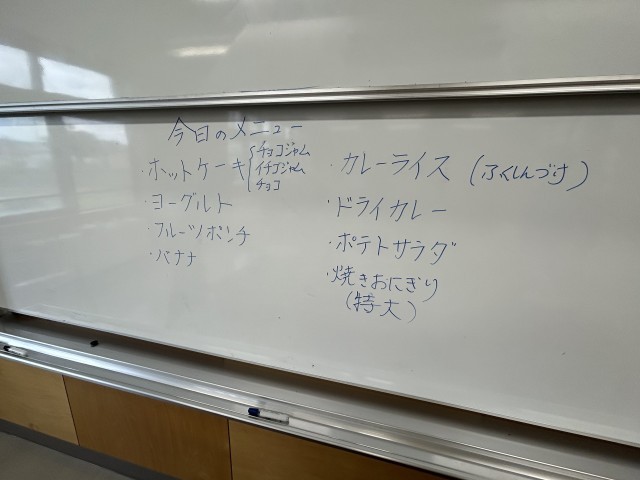 今日のメニュー
・ホットケーキ{チョコジャム
イチゴジャム
チョコ
・ヨーグルト
・フルーツポンチ
・バナナ
・カレーライス (ふくしんづけ)
・ドライカレー
・ポテトサラダ
・焼きおにぎり
(特大)